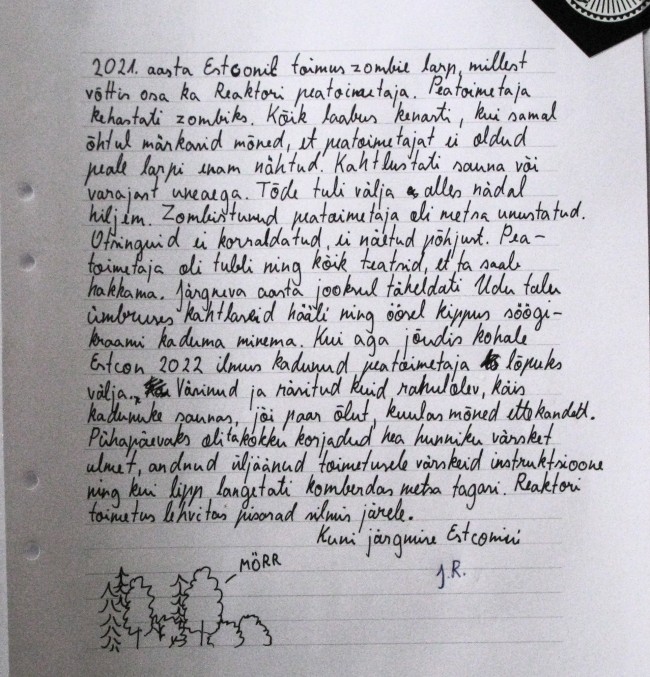 2021. aasta Estconil toimus zombie larp, millest
võttis osa ka Reaktori peatoimetaja. Peatoimetaja
kehastati zombiks. Kõik laabus kenasti, kui samal
õhtul märkasid mõned, et peatoimetajat ei oldud
peale larpi enam nähtud. Kahtlustati sauna või
varajast uneaega. Tõde tuli välja alles nädal
hiljem. Zombistunud peatoimetaja oli metsa unustatud.
Otsinguid ei korraldatud, ei nähtud põhjust. Pea-
toimetaja oli tubli ning kõik teatsid, et ta saab
hakkama. Järgneva aasta jooksul täheldati Udu talu
ümbruses kahtlaseid hääli ning öösel kippus söögi-
kraami kaduma minema. Kui aga jõudis kohale
Estcon 2022 ilmus kadunud peatoimetaja lõpuks
välja. Väsinud ja räsitud kuid rahulolev, käis
kadunuke saunas, jõi paar õlut, kuulas mõned ettekanded.
Pühapäevaks oli ta kokku korjadud hea hunniku värsket
ulmet, andnud üljäänud toimetusele värskeid instruktsioone
ning kui lipp langetati komberdas metsa tagasi. Reaktori
toimetus lehvitas pisarad silmis järele.
Kuni järgmise Estconini
J.R.
MÖRR